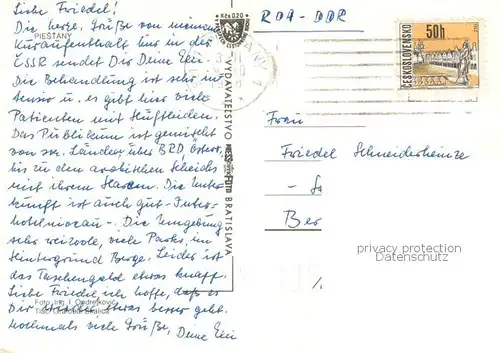 Liebe Friedel!
PIEŠŤANY
Die herzl. Grüße von meinem
Kuraufenthalt hier in der
ČSSR sendet Dir Deine Elli.
Die Behandlung ist sehr in-
tensiv u. es gibt hier viele
Patienten mit Hüftleiden.
Das Publikum ist gemischt
von soz. Länder, über BRD, Österr.
bis zu den arabischen Scheichs
mit ihrem Harem. Die Unter-
kunft ist auch gut - Inter-
hotelniveau -. Die Umgebung
sehr reizvoll, viele Parks, im
Hintergrund Berge. Leider ist
das Taschengeld etwas knapp.
Liebe Friedel, ich hoffe, daß es
Foto: Ing. I. Ondrejkovič
Dir wieder etwas besser geht.
Tlač: Grafobal Skalica
Nochmals viele Grüße, Deine Elli
Kčs 0,20
VYDAVATEĽSTVO
BRATISLAVA
RDA-DDR
50h
ČESKOSLOVENSKO
Frau
Friedel Schneiderheinze
Ber
privacy protection
Datenschutz